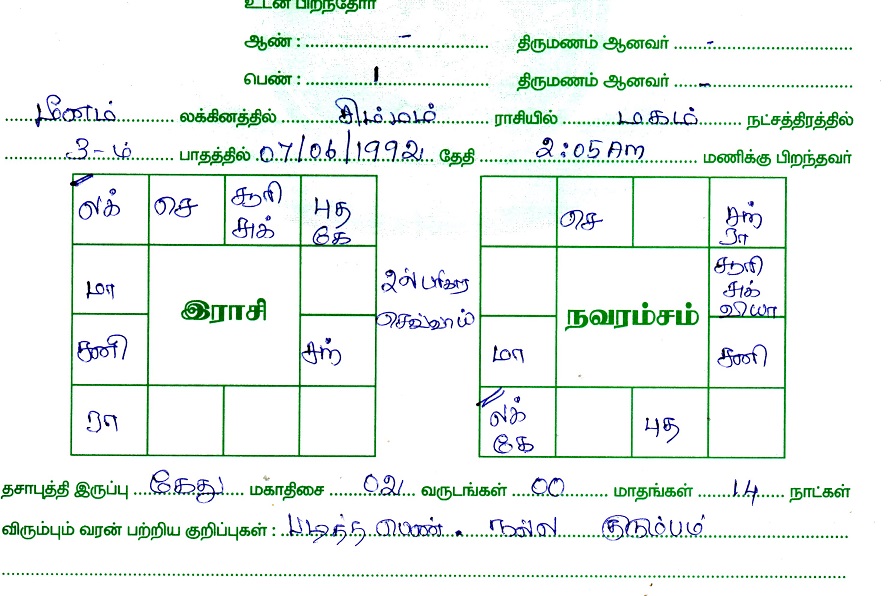 உடன் பிறந்தோர்
ஆண் : - திருமணம் ஆனவர் -
பெண் : 1 திருமணம் ஆனவர் -
மீனம் லக்கினத்தில் சிம்மம் ராசியில் மகம் நட்சத்திரத்தில்
3-ம் பாதத்தில் 07/06/1992 தேதி 2:05 AM மணிக்கு பிறந்தவர்
லக் செ சூரி சுக் புத கே
மா
சனி சந்
ரா
இராசி
உள் பரிகார
செவ்வாய்
செ சந் ரா
சூரி சுக் வியா
மா சனி
லக் கே புத
நவரம்சம்
தசாபுத்தி இருப்பு கேது மகாதிசை 02 வருடங்கள் 00 மாதங்கள் 14 நாட்கள்
விரும்பும் வரன் பற்றிய குறிப்புகள் : படித்த பெண். நல்ல குடும்பம்